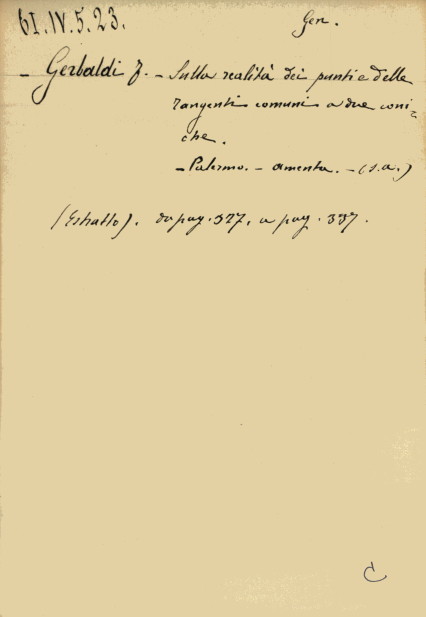 61.IV.5.23.
Gen.
- Gerbaldi F. - Sulla realità dei punti e delle
tangenti comuni a due coni=
che.
- Palermo. - Amenta. - (s.a.)
(Estratto). da pag. 327, a pag. 337.
C